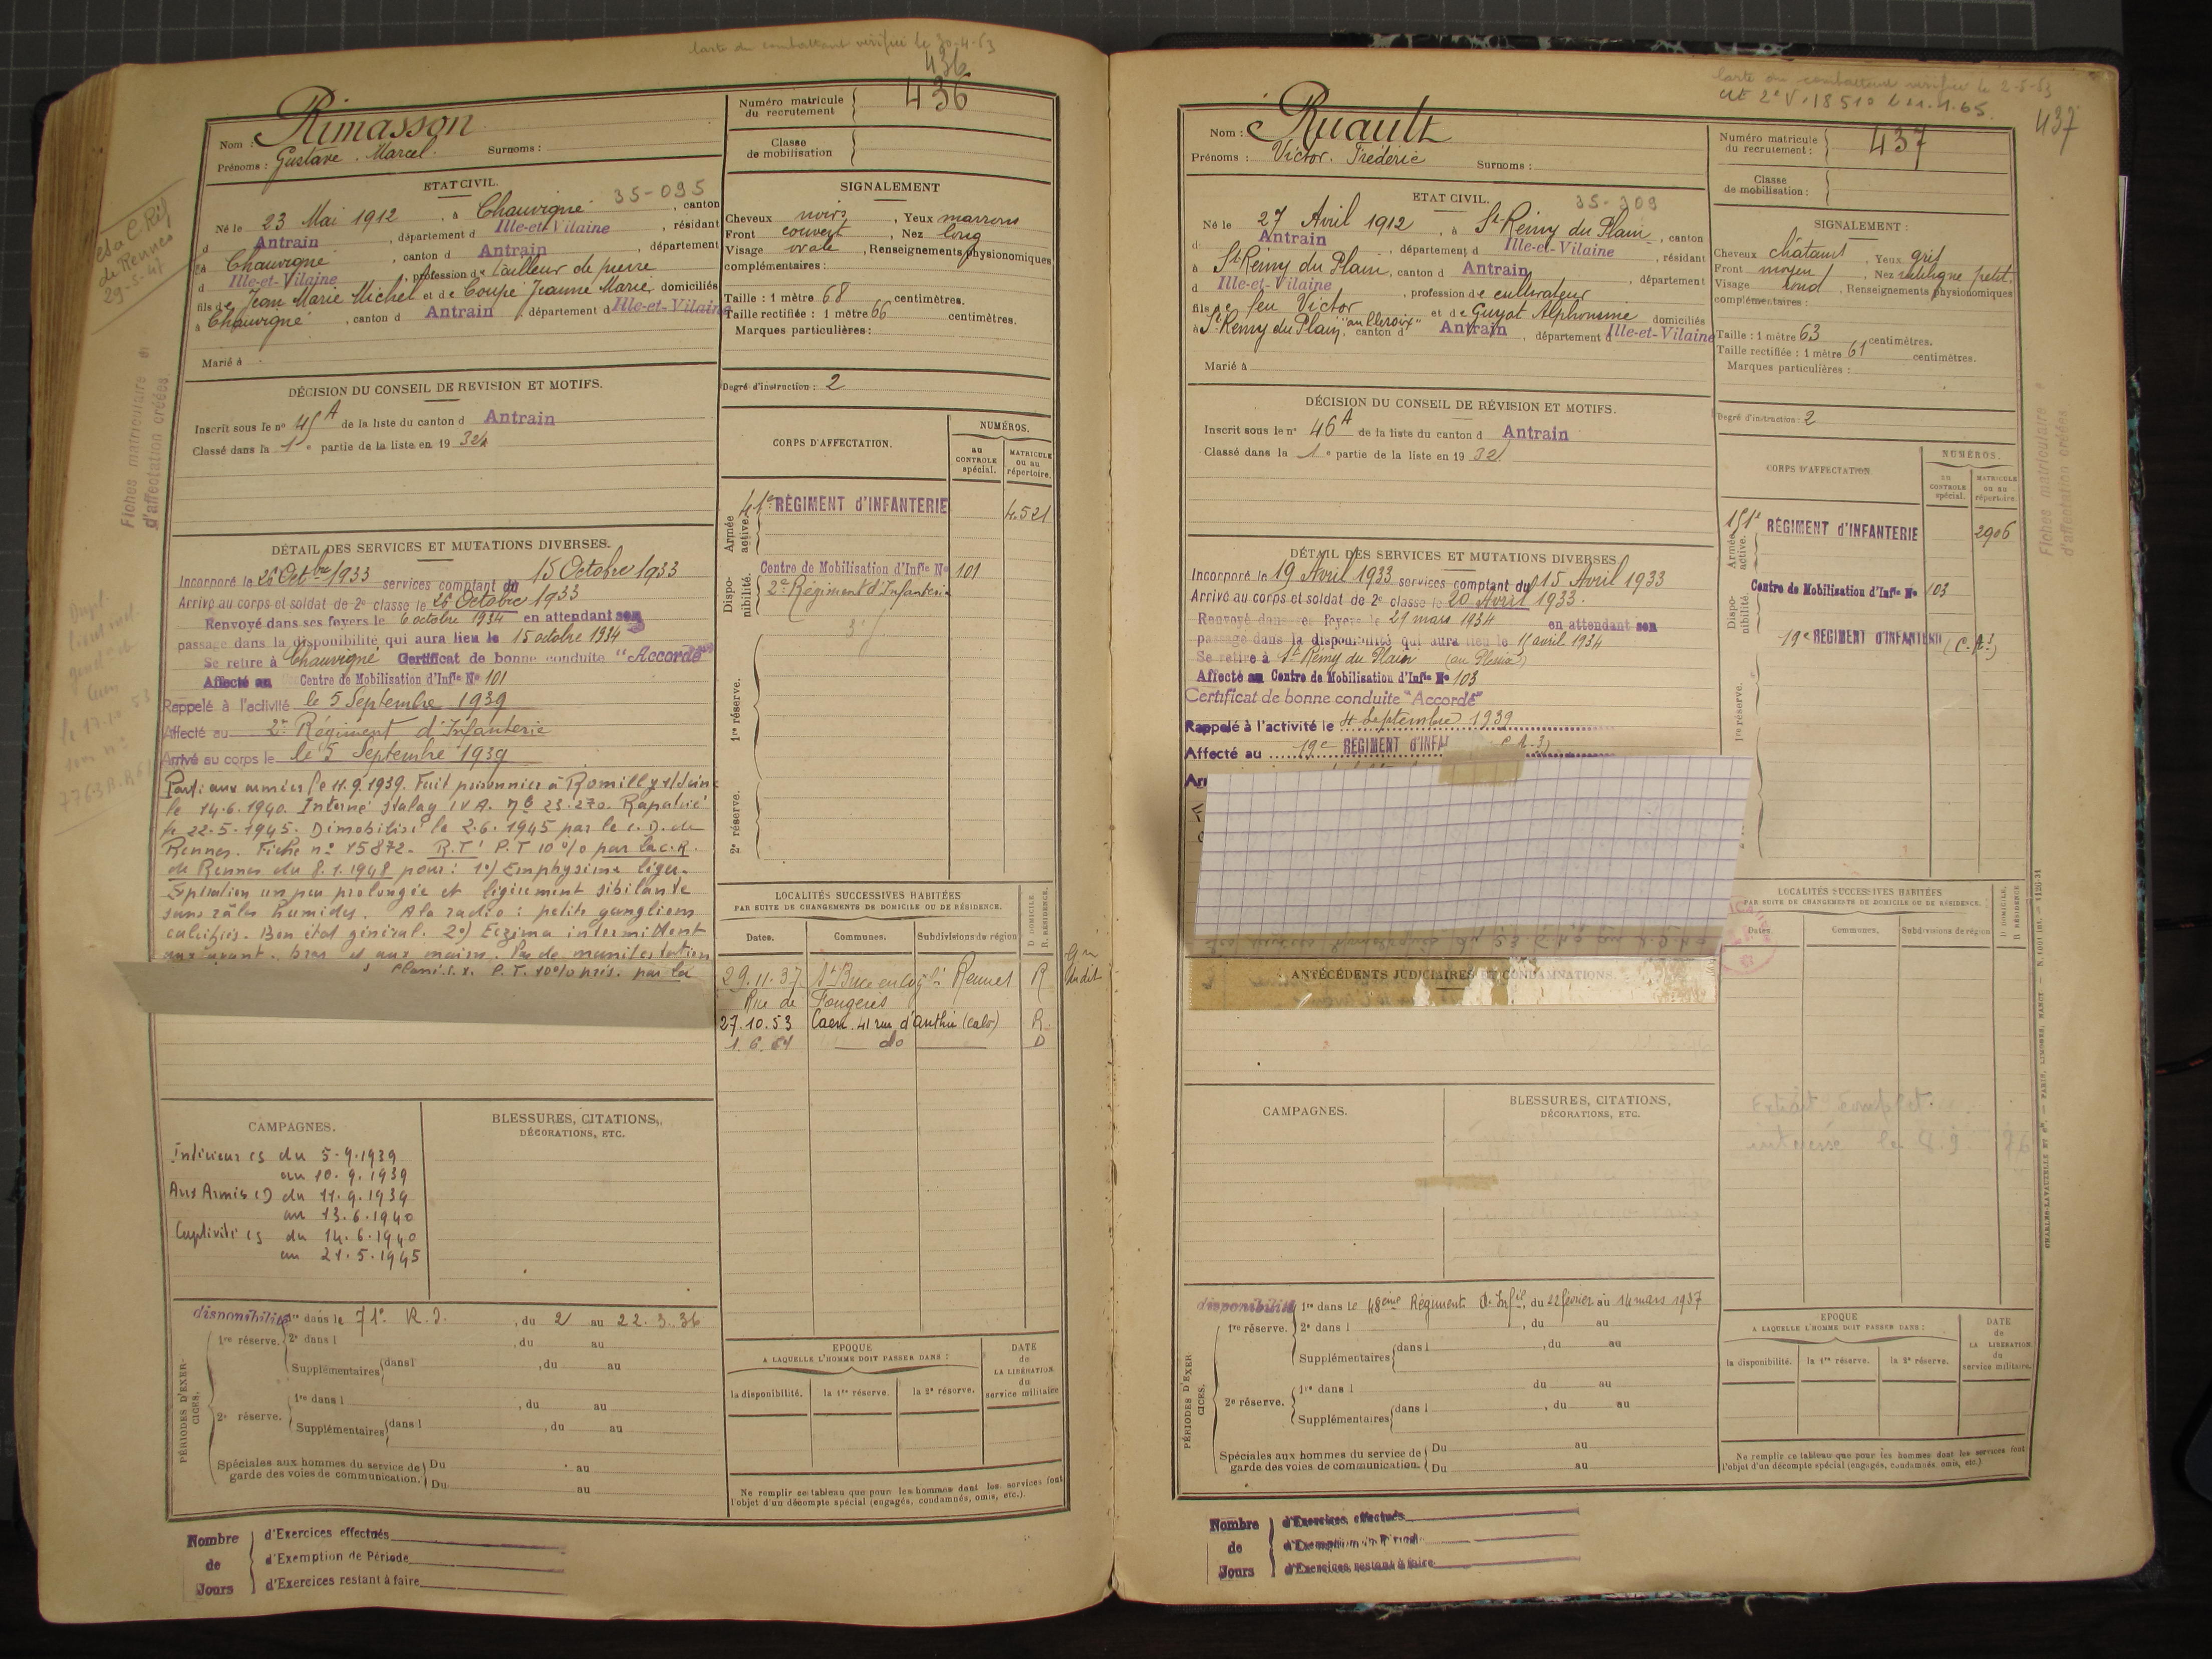 Carte du combattant vérifiée le 30-4-53
436
Nom : Rimasson
Prénoms : Gustave . Marcel. Surnoms :
Numéro matricule du recrutement 436
Classe de mobilisation
ETAT CIVIL. 35-095
Né le 23 Mai 1912, à Chauvigné, canton
d Antrain, département d Ille-et-Vilaine, résidant
à Chauvigné, canton d Antrain, département
d Ille-et-Vilaine, profession de tailleur de pierre
fils de Jean Marie Michel et de Coupé Jeanne Marie domiciliés
à Chauvigné, canton d Antrain, département d Ille-et-Vilaine
Marié à
SIGNALEMENT
Cheveux noirs, Yeux marrons
Front couvert, Nez long
Visage ovale, Renseignements physionomiques
complémentaires :
Taille : 1 mètre 68 centimètres.
Taille rectifiée : 1 mètre 66 centimètres.
Marques particulières :
Degré d'instruction : 2
DÉCISION DU CONSEIL DE REVISION ET MOTIFS.
Inscrit sous le n° 45 A de la liste du canton d Antrain
Classé dans la 1e partie de la liste en 1932
CORPS D'AFFECTATION.
NUMÉROS.
au CONTROLE spécial.
MATRICULE ou au répertoire.
Armée active.
41e RÉGIMENT d'INFANTERIE 4521
Disponibilité.
Centre de Mobilisation d'Infie N° 101
2e Régiment d'Infanterie
1re réserve.
2e réserve.
DÉTAIL DES SERVICES ET MUTATIONS DIVERSES.
Incorporé le 26 Octbre 1933 services comptant du 15 Octobre 1933
Arrivé au corps et soldat de 2e classe le 26 Octobre 1933
Renvoyé dans ses foyers le 6 octobre 1934 en attendant son
passage dans la disponibilité qui aura lieu le 15 octobre 1934
Se retire à Chauvigné Certificat de bonne conduite "Accordé"
Affecté au Centre de Mobilisation d'Infie N° 101
Rappelé à l'activité le 5 Septembre 1939
Affecté au 2e Régiment d'Infanterie
Arrivé au corps le le 5 Septembre 1939
Parti aux armées le 11.9.1939. Fait prisonnier à Romilly s/Seine
le 14.6.1940. Interné stalag IV A. n° 23.270. Rapatrié
le 22.5.1945. Démobilisé le 2.6.1945 par le C.D. de
Rennes. Fiche n° 15872. R.T! P.T 10% par la C.R.
de Rennes du 8.1.1948 pour : 1°) Emphysème léger.
Expiration un peu prolongée et légèrement sibilante
sans râles humides. A la radio : petits ganglions
calcifiés. Bon état général. 2°) Eczéma intermittent
aux avant-bras et aux mains. Pas de manifestation
P.T. 10% prés. par la
LOCALITÉS SUCCESSIVES HABITÉES
PAR SUITE DE CHANGEMENTS DE DOMICILE OU DE RÉSIDENCE.
Dates. Communes. Subdivisions de région D DOMICILE. R. RÉSIDENCE.
29.11.37 Rennes R
Rue de Fougères
27.10.53 Caen 41 rue d'authie (calv) R.
1.6.64 do D
CAMPAGNES.
Intérieur CS du 5.9.1939
au 10.9.1939
Aux Armées CD du 11.9.1939
au 13.6.1940
Captivité CS du 14.6.1940
au 21.5.1945
BLESSURES, CITATIONS,
DÉCORATIONS, ETC.
PÉRIODES D'EXERCICES.
disponibilité 1re dans le 71e R.I., du 2 au 22.3.36
1re réserve. 2e dans l , du au
Supplémentaires dans l , du au
2e réserve. 1re dans l , du au
Supplémentaires dans l , du au
Spéciales aux hommes du service de garde des voies de communication. Du au
Du au
EPOQUE
A LAQUELLE L'HOMME DOIT PASSER DANS :
la disponibilité. la 1re réserve. la 2e réserve.
DATE de LA LIBÉRATION du service militaire
Ne remplir ce tableau que pour les hommes dont les services font
l'objet d'un décompte spécial (engagés, condamnés, omis, etc.).
Nombre de Jours
d'Exercices effectués
d'Exemption de Période
d'Exercices restant à faire
Fiches matriculaire et
d'affectation créées
de Rennes
29-5-47
Carte du combattant vérifiée le 2-5-53
437
Nom : Ruault
Prénoms : Victor. Frédéric Surnoms :
Numéro matricule du recrutement : 437
Classe de mobilisation :
ETAT CIVIL. 35-309
Né le 27 Avril 1912, à St-Rémy du Plain, canton
d Antrain, département d Ille-et-Vilaine, résidant
à St Rémy du Plain, canton d Antrain, département
d Ille-et-Vilaine, profession de cultivateur
fils de feu Victor et de Guyot Alphonsine domiciliés
à St Rémy du Plain, canton d Antrain, département d Ille-et-Vilaine
Marié à
SIGNALEMENT :
Cheveux châtains, Yeux gris
Front moyen, Nez rectiligne petit.
Visage rond, Renseignements physionomiques
complémentaires :
Taille : 1 mètre 63 centimètres.
Taille rectifiée : 1 mètre 61 centimètres.
Marques particulières :
Degré d'instruction : 2
DÉCISION DU CONSEIL DE RÉVISION ET MOTIFS.
Inscrit sous le n° 46 A de la liste du canton d Antrain
Classé dans la 1e partie de la liste en 1932
CORPS D'AFFECTATION.
NUMÉROS.
au CONTROLE spécial.
MATRICULE ou au répertoire.
Armée active.
151e RÉGIMENT d'INFANTERIE 2906
Disponibilité.
Centre de Mobilisation d'Infie N° 103
19e RÉGIMENT D'INFANTERIE (C.A.3)
1re réserve.
DÉTAIL DES SERVICES ET MUTATIONS DIVERSES
Incorporé le 19 Avril 1933 services comptant du 15 Avril 1933
Arrivé au corps et soldat de 2e classe le 20 Avril 1933.
Renvoyé dans ses foyers le 29 mars 1934 en attendant son
passage dans la disponibilité qui aura lieu le 15 avril 1934
Se retire à St Rémy du Plain
Affecté au Centre de Mobilisation d'Infie N° 103
Certificat de bonne conduite "Accordé"
Rappelé à l'activité le 4 septembre 1939
Affecté au 19e RÉGIMENT d'INFA
ANTÉCÉDENTS JUDICIAIRES ET CONDAMNATIONS.
LOCALITÉS SUCCESSIVES HABITÉES
PAR SUITE DE CHANGEMENTS DE DOMICILE OU DE RÉSIDENCE.
Dates. Communes. Subdivisions de région D DOMICILE. R RÉSIDENCE
Extrait complet.
CAMPAGNES.
BLESSURES, CITATIONS,
DÉCORATIONS, ETC.
PÉRIODES D'EXERCICES.
disponibilité 1re dans le 48ème Régiment d'Infie, du 22 février au 14 mars 1937
1re réserve. 2e dans l , du au
Supplémentaires dans l , du au
2e réserve. 1re dans l du au
Supplémentaires dans l , du au
Spéciales aux hommes du service de garde des voies de communication. Du au
Du au
EPOQUE
A LAQUELLE L'HOMME DOIT PASSER DANS :
la disponibilité. la 1re réserve. la 2e réserve.
DATE de LA LIBÉRATION du service militaire.
Ne remplir ce tableau que pour les hommes dont les services font
l'objet d'un décompte spécial (engagés, condamnés, omis, etc.)
Nombre de Jours
d'Exercices effectués
d'Exemption de Période
d'Exercices restant à faire
Fiches matriculaire
d'affectation créées